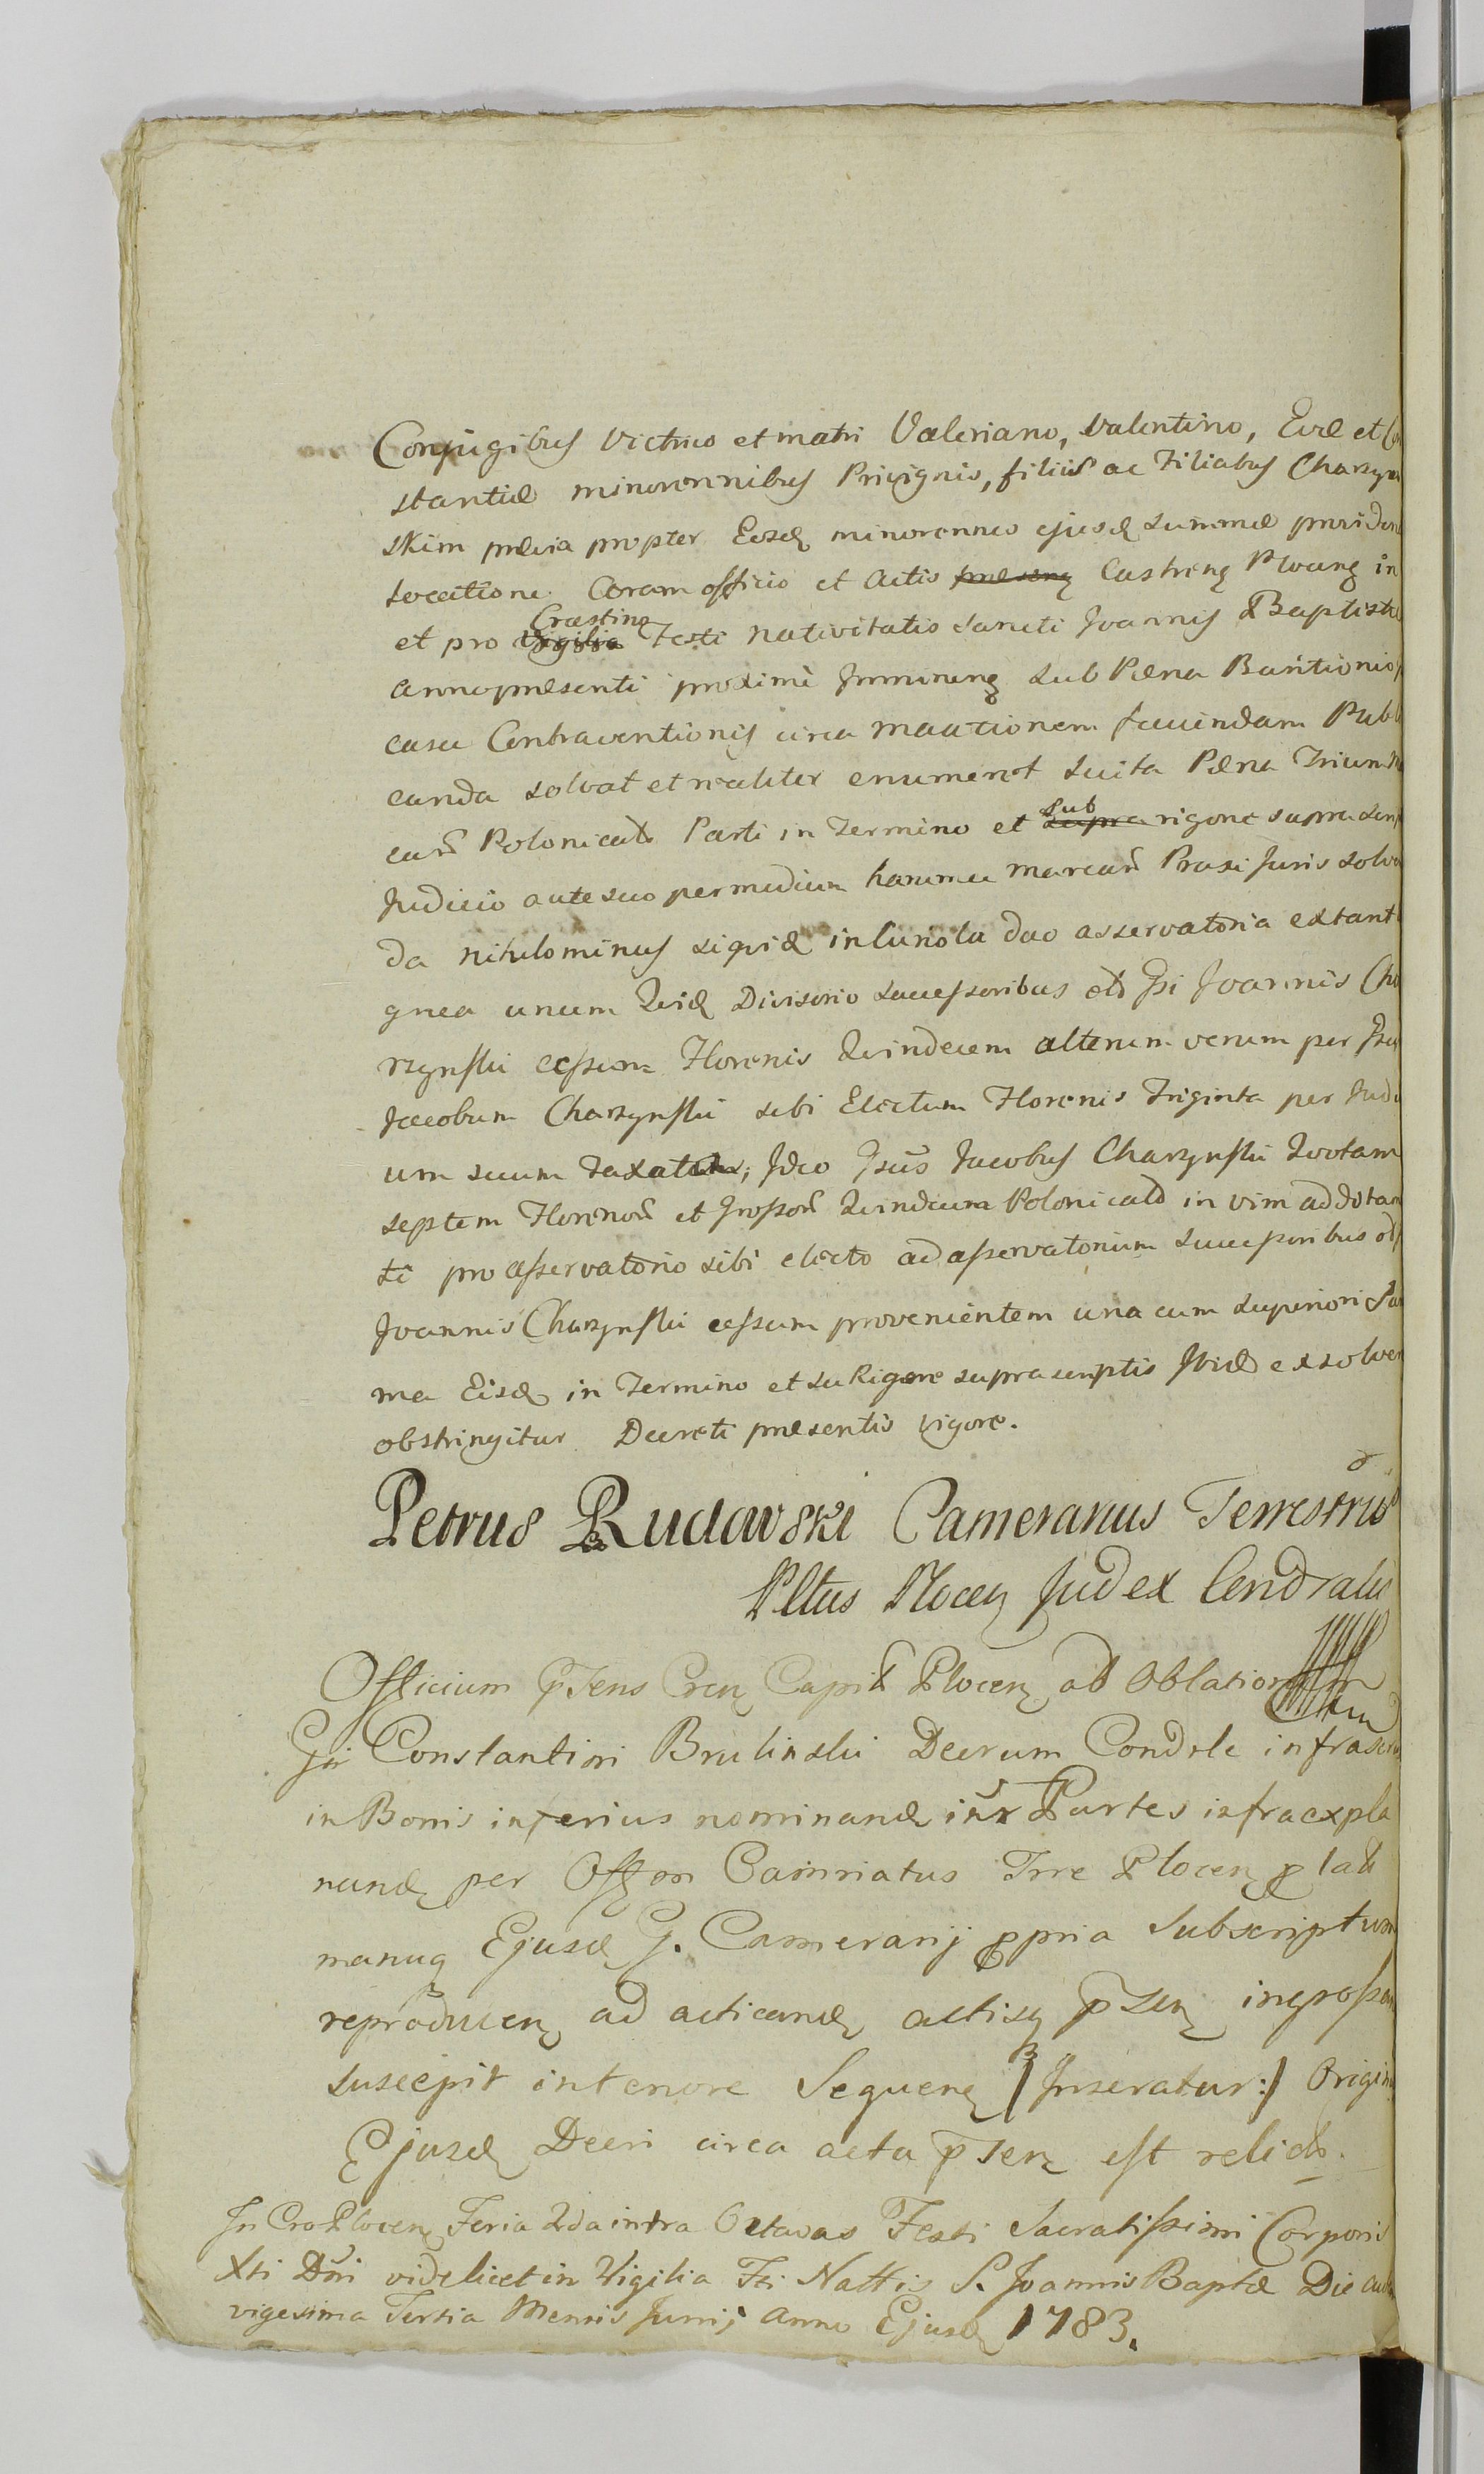 Conjugibus Vitrico et matri Valeriano, Valentino, Evæ et Con
stantiæ minorennibus Privignis, filiis ac Filiabus Charzyn
skim prævia propter Eosdq minorennes ejusdq summæ
locatione. Coram officio et Actis præsenq Castrenq Plocenq in
et pro Vigilia Crastino Festi Nativitatis Sancti Joannis Baptistæ
Anno præsenti proxime Imminenq sub Pæna Bannitionis
casu Contraventionis circa faciendam Publi
canda solvat et realiter enumeret Luita Pæna Trium
carũ Polonicalũ Parti in Termino et supra sub rigore supra
Judicio aute suo per medium harumce marcarũ Praxi Juris solven
da nihilominus siquidq duo asservatoria extant
gnea unum Quidq Divisorio successoribus olim Gsi Joannis Cha
rzynski cessum Florenis Quindecem alterum verum per
Jacobum Charzynski sibi Electum Florenis Triginta per Judici
um suum taxatum, Ideo Gsus Jacobus Charzynski Quotam
septem Florenorũ et Grossorũ Quindecem Polonicalũ in vim
pro asservatorio sibi electo ad asservatorium successoribus
Joannis Charzynski cessum provenientem una cum superiori Sum
ma Eisdq in Termino et su Rigore suprascriptis Ibidq exsolvere
obstringitur Decreti præsentis vigore.
Petrus Rudowski Camerarius Terrestris
Pltus Plocenq Judex Condralis
Officium Psens Crenq Capit Plocenq ad Oblationem
Gsi Constantini Brulinski Decrum Condrle infrascrip
in Bonis inferius nominandq intr Partes infraexpla
nandq per Offm Camriatus Trre Plocenq
manuq Ejusdq G. Camerarij ppria Subscriptum
reproducenq ad acticandq actisq psenq ingrossan
suscepit intenore Sequenq /Inseratur:/ Origin
Ejusdq Decri circa acta psenq est relict.
In Cro Plocen Feria 2da intra Octavas Festi Sacratissimi Corporis
Xti Dni videlicet in Vigilia Fti Nattis S. Joannis Baptæ Die
vigesima Tertia Mensis Junij Anno Ejusdq 1783.